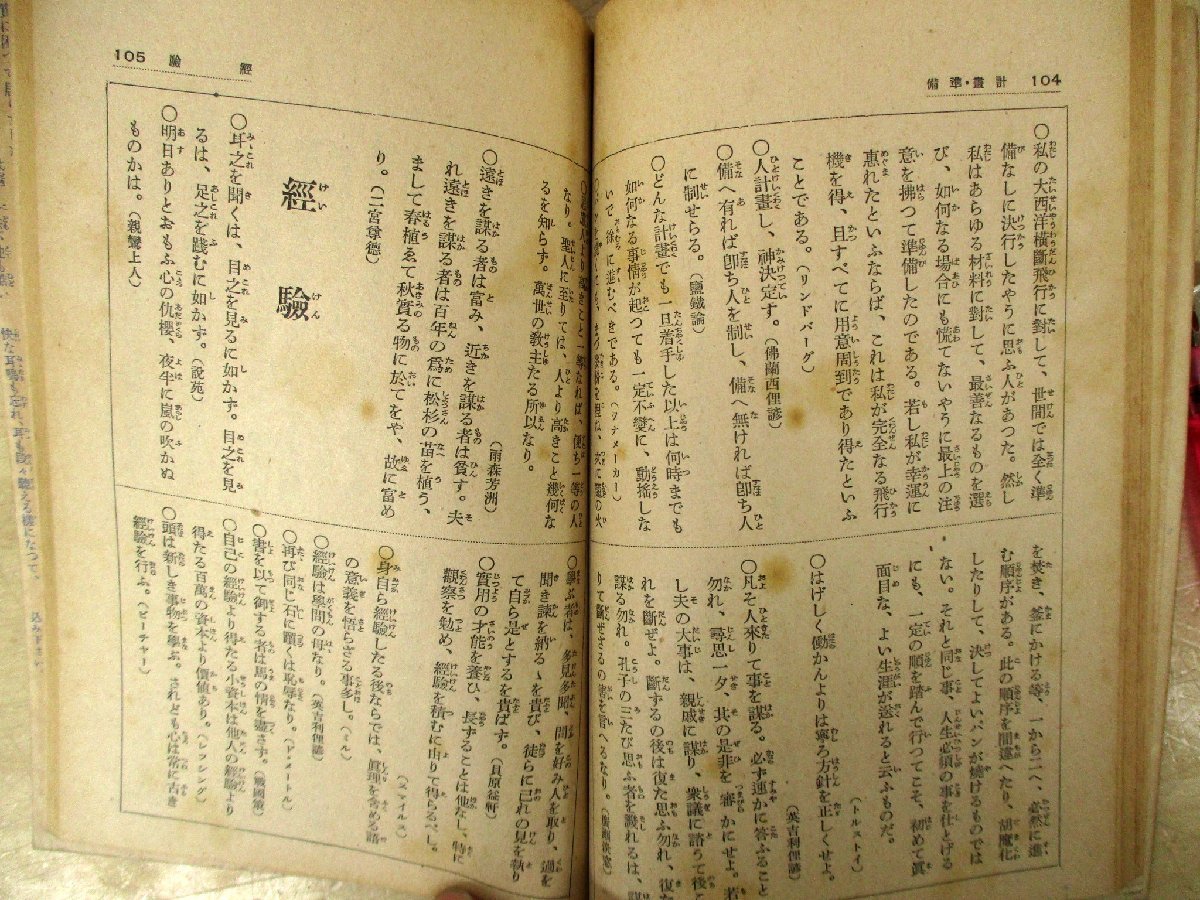 計畫・準備 104
○私の大西洋橫斷飛行に對して、世間では全く準
備なしに決行したやうに思ふ人があつた。然し
私はあらゆる材料に對して、最善なるものを選
び、如何なる場合にも慌てないやうに最上の注
意を拂つて準備したのである。若し私が幸運に
惠れたといふならば、これは私が完全なる飛行
機を得、且すべてに用意周到であり得たといふ
ことである。（リンドバーグ）
○人計畫し、神決定す。（佛蘭西俚諺）
○備へ有れば卽ち人を制し、備へ無ければ卽ち人
に制せらる。（鹽鐵論）
○どんな計畫でも一旦着手した以上は何時までも
如何なる事情が起つても一定不變に、動搖しな
いで、徐々に進むべきである。（ワナメーカー）
を焚き、釜にかける等、一から二へ、必然に進
む順序がある。此の順序を間違へたり、胡魔化
したりして、決してよいパンが燒けるものでは
ない。それと同じ事、人生必須の事を仕とげる
にも、一定の順を踏んで行つてこそ、初めて眞
面目な、よい生涯が送れると云ふものだ。
（トルストイ）
○はげしく働かんよりは寧ろ方針を正しくせよ。
（英吉利俚諺）
○凡そ人來りて事を謀る。必ず速かに答ふること
勿れ、尋思一夕、其の是非を審かにせよ。若
し夫の大事は、親戚に謀り、衆議に諮うて後こ
れを斷ぜよ。斷ずるの後は復た思ふ勿れ、復た
謀る勿れ。孔子の三たび思ふ者を譏れるは、
105 經驗
なり。聖人に至りては、人より高きこと幾何な
るを知らず。萬世の敎主たる所以なり。
（雨森芳洲）
○遠きを謀る者は富み、近きを謀る者は貧す。夫
れ遠きを謀る者は百年の爲に松杉の苗を植う、
まして春植ゑて秋實る物に於てをや、故に富め
り。（二宮尊德）
經驗
○耳之を聞くは、目之を見るに如かず。目之を見
るは、足之を踐むに如かず。（說苑）
○明日ありとおもふ心の仇櫻、夜半に嵐の吹かぬ
ものかは。（親鸞上人）
聞き諫を納るゝを貴び、徒らに己れの見を執り
て自ら是とするを貴ばず。（貝原益軒）
○實用の才能を養ひ、長ずることは他なし、特に
觀察を勉め、經驗を積むに由りて得らるべし。
（スマイルス）
○身自ら經驗したる後ならでは、眞理を含める諺
の意義を悟らざる事多し。（ミル）
○經驗は學問の母なり。（英吉利俚諺）
○再び同じ石に躓くは恥辱なり。（ド・メートル）
○書を以て御する者は馬の情を盡さず。（戰國策）
○自己の經驗より得たる小資本は他人の經驗より
得たる百萬の資本より價値あり。（レッシング）
○頭は新しき事物を學ぶ。されども心は常に古き
經驗を行ふ。（ビーチャー）